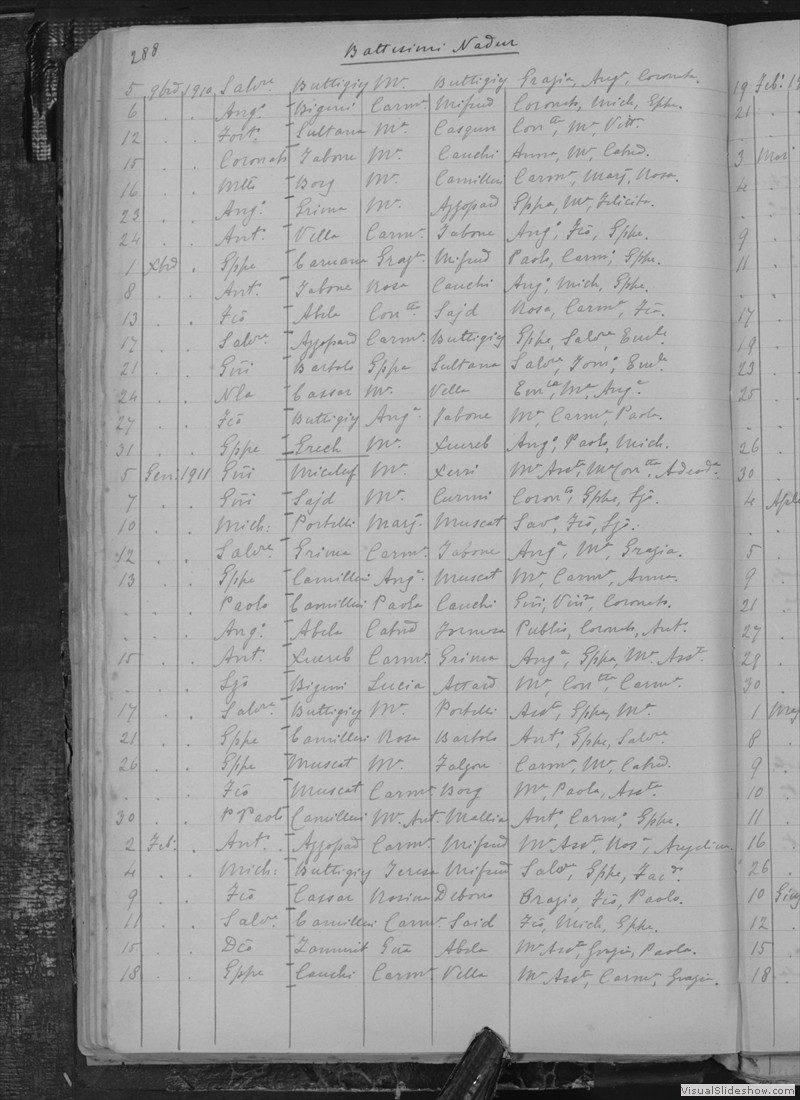 288 Battesimi Nadur
5 9brd 1910 Salvre Buttigieg Ma. Buttigieg Grazia, Anga, Coronata.
6 . . Ango Bigeni Carma Mifsud Coronato, Mich, Gppe.
12 . . Forto Sultana Ma Casqun Contta, Ma, Vitt.
15 . . Coronato Tabone Ma. Cauchi Anna, Ma, Catnd.
16 . . Mtto Borg Ma. Camilleri Carma, Marj, Rosa.
23 . . Ango Grima Ma. Azzopard Gppa, Ma, Felicita.
24 . . Anto Vella Carma Tabone Ango, Fco, Gppe.
1 Xbrd . Gppe Caruana Graza Mifsud Paolo, Carmo, Gppe.
8 . . Anto Tabone Rosa Cauchi Ango, Mich, Gppe.
13 . . Fco Abela Contta Sajd Rosa, Carma, Fco.
17 . . Salvre Azzopard Carma Buttigieg Gppe, Salvre, Emle
21 . . Gni Bartolo Gppa Sultana Salvre, Tomo, Emle
24 . . Nla Cassar Ma. Vella Emla, Ma, Anga.
27 . . Fco Buttigieg Anga Tabone Ma, Carma, Paola.
31 . . Gppe Grech Ma. Xuereb Ango, Paolo, Mich.
5 Genn. 1911 Gni Micalef Ma. Xerri Ma Assta, Ma Contta, Adeoda.
7 . . Gni Sajd Ma. Curmi Corona, Gppe, Lzo.
10 . . Mich: Portelli Marj. Muscat Savo, Fco, Lzo.
12 . . Salvre Grima Carma Tabone Anga, Ma, Grazia.
13 . . Gppe Camilleri Anga. Muscat Ma, Carma, Anna.
. . . Paolo Camilleri Paola Cauchi Gni, Vinza, Coronato.
. . . Ango Abela Catnd Formosa Publio, Coronato, Anto.
15 . . Anto Xuereb Carma. Grima Anga, Gppa, Ma Assta.
. . . Lzo Bigeni Lucia Attard Ma, Contta, Carma.
17 . . Salvre Buttigieg Ma. Portelli Assta, Gppa, Ma.
21 . . Gppe Camilleri Rosa Bartolo Anto, Gppe, Salvre.
26 . . Gppe Muscat Ma. Falzon Carma, Ma, Catnd.
. . . Fco Muscat Carma Borg Ma, Paola, Assta.
30 . . P. Paolo Camilleri Ma. Anta Mallia Anto, Carmo, Gppe.
2 Feb: . Anto Azzopard Carma Mifsud Ma Assta, Rosa, Angelina.
4 . . Mich: Buttigieg Teresa Mifsud Salvre, Gppe,
9 . . Fco Cassar Rosina Debono Brazio, Fco, Paolo.
11 . . Salvre Camilleri Carma Said Fco, Mich, Gppe.
15 . . Dco Zammit Gna Abela Ma Assta, Grazia, Paola.
18 . . Gppe Cauchi Carma Vella Ma Assta, Carma, Grazia.
19 Feb: 19
21
3 Mar
4
9
11
17
19
23
25
26
30
4 Aple
5
9
21
27
28
30
1 Mag
8
9
10
11
16
26
10 Giug
12
15
18
VisualSlideshow.com